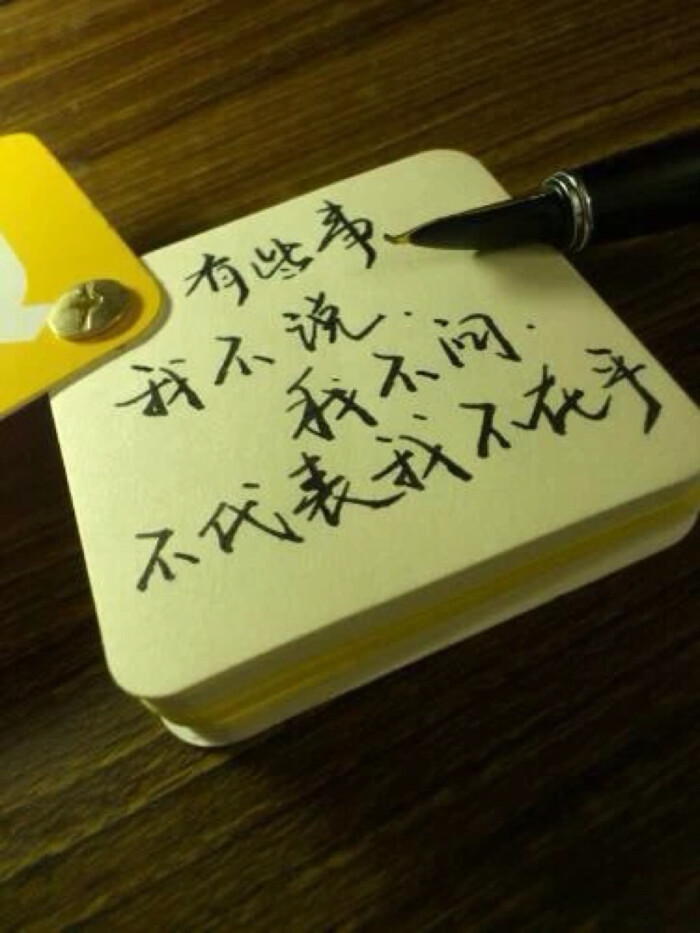 有些事
我不说.
我不问.
不代表我不在乎